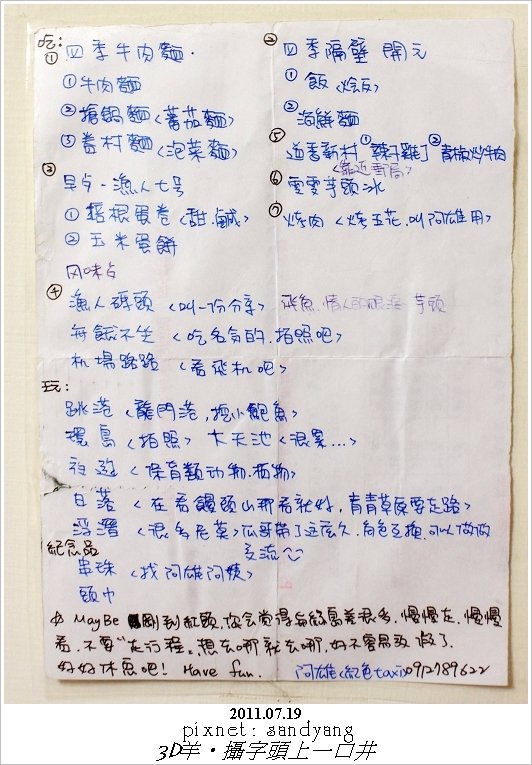 吃:
① 四季牛肉麵.
① 牛肉麵
② 搶鍋麵<蕃茄麵>
③ 眷村麵<泡菜麵>
② 四季隔壁 開元
① 飯<燴飯>
② 海鮮麵
③ 早点.漁人七号
① 培根蛋卷<甜.鹹>
② 玉米蛋餅
风味点
④ 漁人碼頭<叫一份分享> 飛魚.情人的眼淚 芋頭
無餓不坐<吃名氣的.拍照吧>
机場路路<看飛机吧>
⑤ 道香新村 ①辣子雞丁 ②青椒炒牛肉
<靠近郵局>
⑥ 雯雯芋頭冰
⑦ 烤肉<烤五花.叫阿雄用>
玩:
跳港<龍門港,挖小鮑魚>
環島<拍照> 大天池<很累...>
夜遊<保育類动物.植物>
日落<在看饅頭山那看就好,青青草原要走路>
浮潛<很多尼莫>瓜哥帶了这広久.角色互換.可以做做
交流
紀念品
串珠<找阿雄阿姨>
頭巾
MayBe 剛到紅頭,你会覚得与綠島差很多.慢慢走.慢慢
看.不要"走行程",想去哪就去哪.好不容易放假了.
好好休息吧! Have fun. 阿雄<紅色taxi>0912789622
2011.07.19
pixnet: sandyang
3D羊·攝字頭上一口井